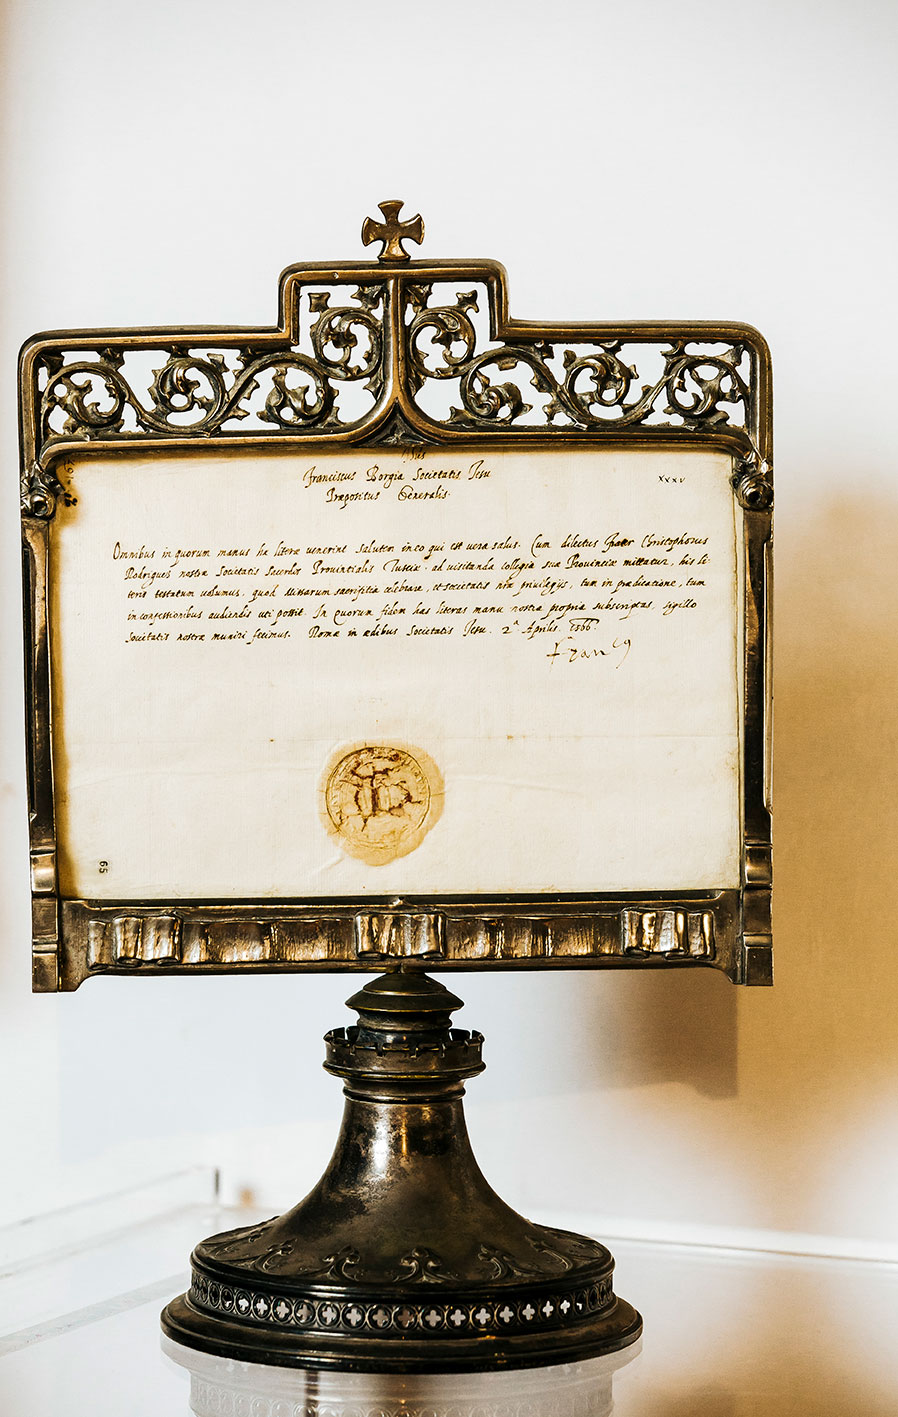 Ihus
Franciscus Borgia Societatis Jesu
Præpositus Generalis.
xxxv
Omnibus in quorum manus hæ literæ venerint salutem in eo qui est vera salus. Cum dilectus Frater Christophorus
Rodrigues nostræ Societatis Sacerdos Provincialis Tusciæ ad visitanda collegia suæ Provinciæ mittatur, his li
teris testatum volumus, quod Missarum sacrificia celebrare, et societatis nræ privilegijs, tum in prædicatione, tum
in confessionibus audiendis uti possit. In quorum fidem has literas manu nostra propria subscriptas, sigillo
Societatis nostræ muniri fecimus. Romæ in ædibus Societatis Jesu. 2ª Aprilis. 1566.
Franco
65